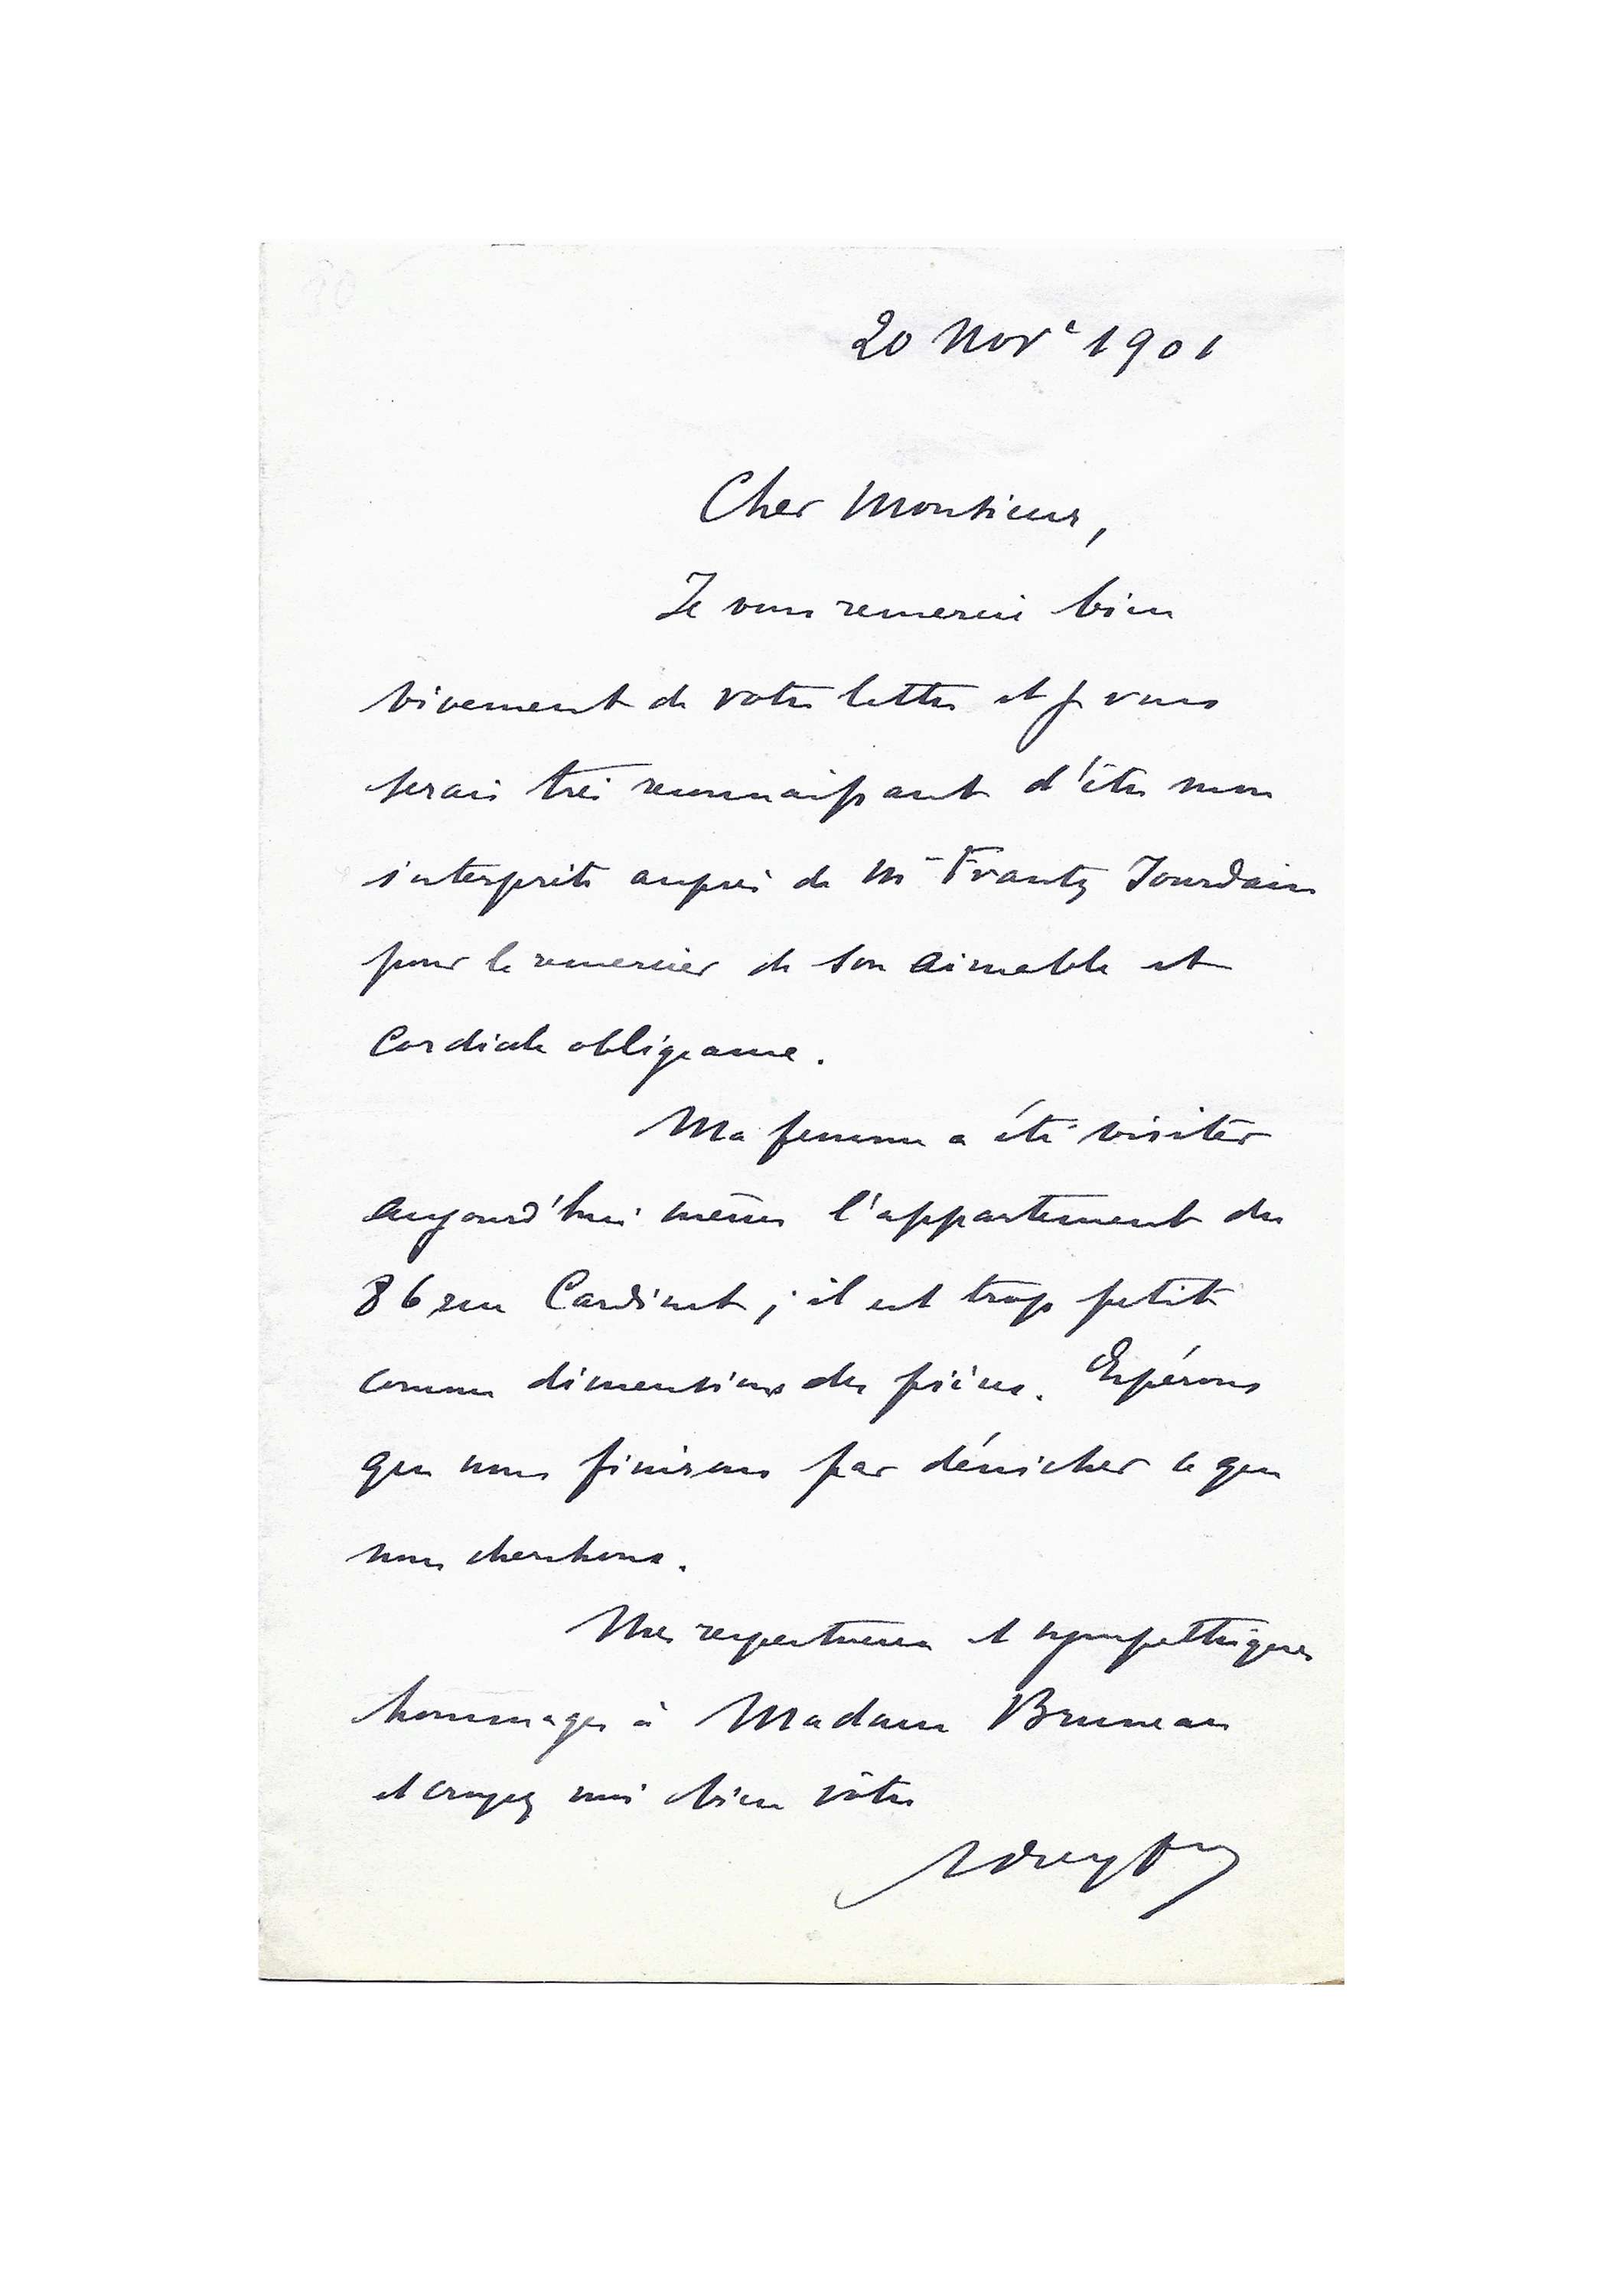 20 Nov<sup>e</sup> 1901
Cher Monsieur,
Je vous remercie bien
vivement de votre lettre et je vous
serais très reconnaissant d'être mon
interprète auprès de Mr Frantz Jourdain
pour le remercier de son aimable et
cordiale obligeance.
Ma femme a été visiter
aujourd'hui même l'appartement du
86 rue Cardinet ; il est trop petit
comme dimensions des pièces. Espérons
que nous finirons par dénicher ce que
nous cherchons.
Mes respectueux et sympathiques
hommages à Madame Bruneau
et croyez moi bien vôtre
ADreyfus